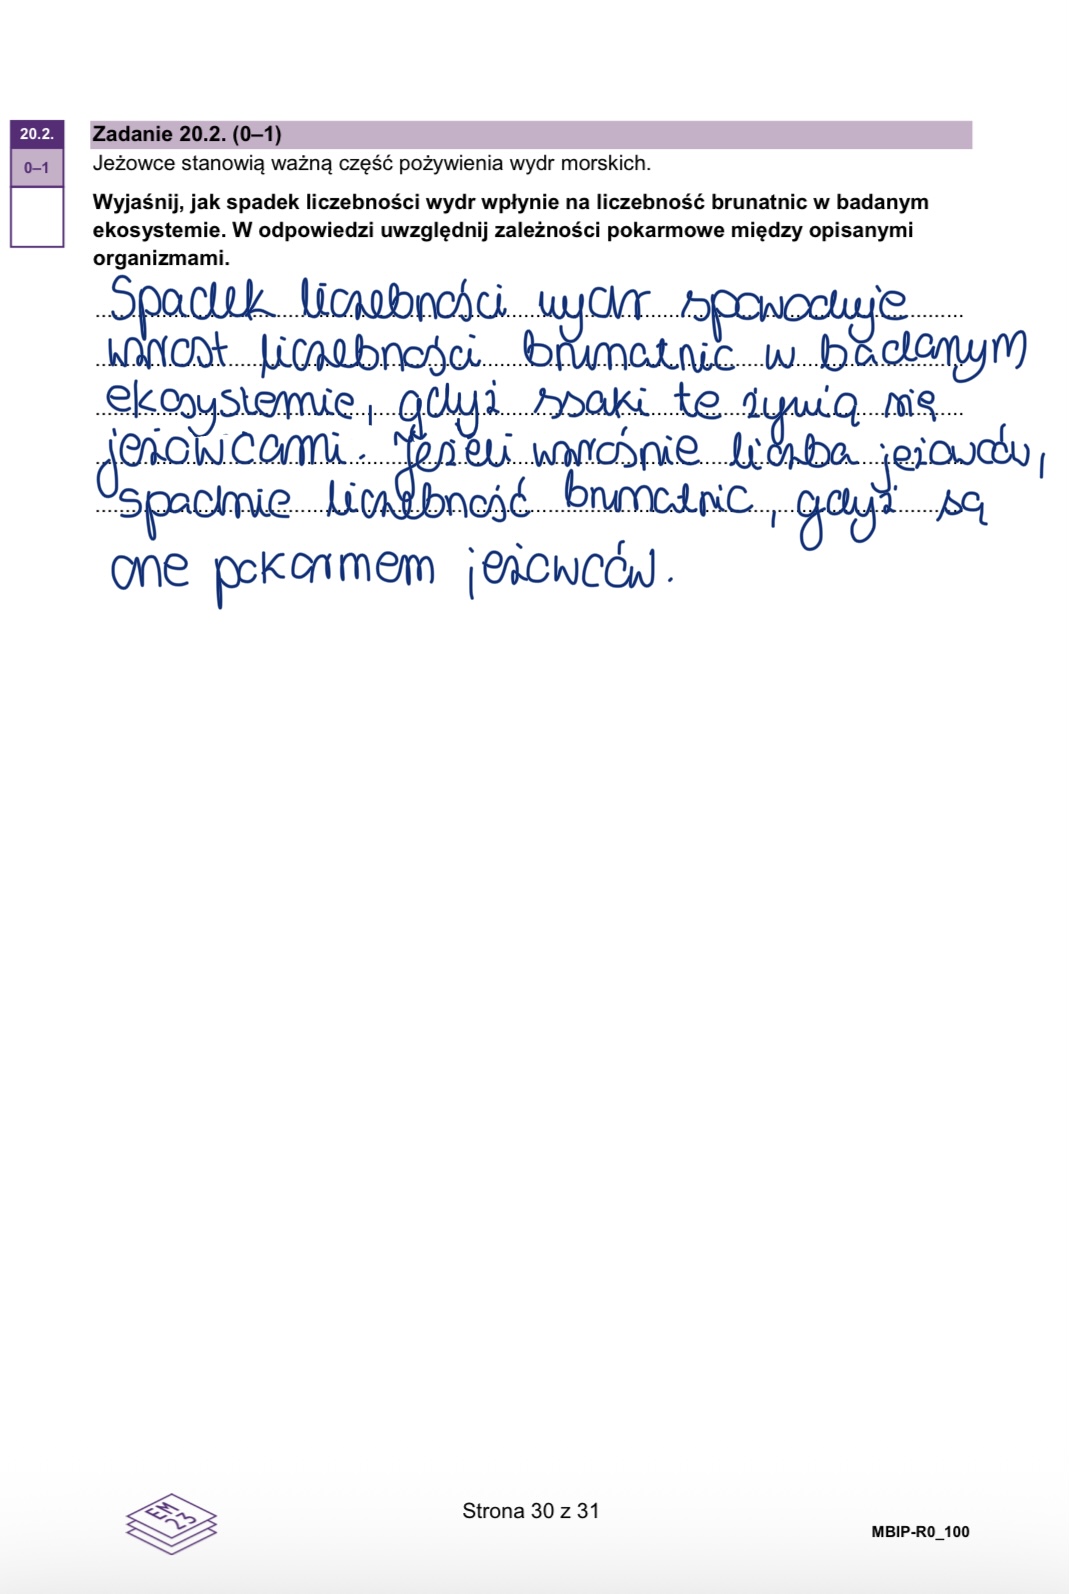 20.2.
0–1
Zadanie 20.2. (0–1)
Jeżowce stanowią ważną część pożywienia wydr morskich.
Wyjaśnij, jak spadek liczebności wydr wpłynie na liczebność brunatnic w badanym
ekosystemie. W odpowiedzi uwzględnij zależności pokarmowe między opisanymi
organizmami.
Spadek liczebności wydr spowoduje
wzrost liczebności brunatnic w badanym
ekosystemie, gdyż ssaki te żywią się
jeżowcami. Jeżeli wzrośnie liczba jeżowców,
spadnie liczebność brunatnic, gdyż są
one pokarmem jeżowców.
EM
23
Strona 30 z 31
MBIP-R0_100